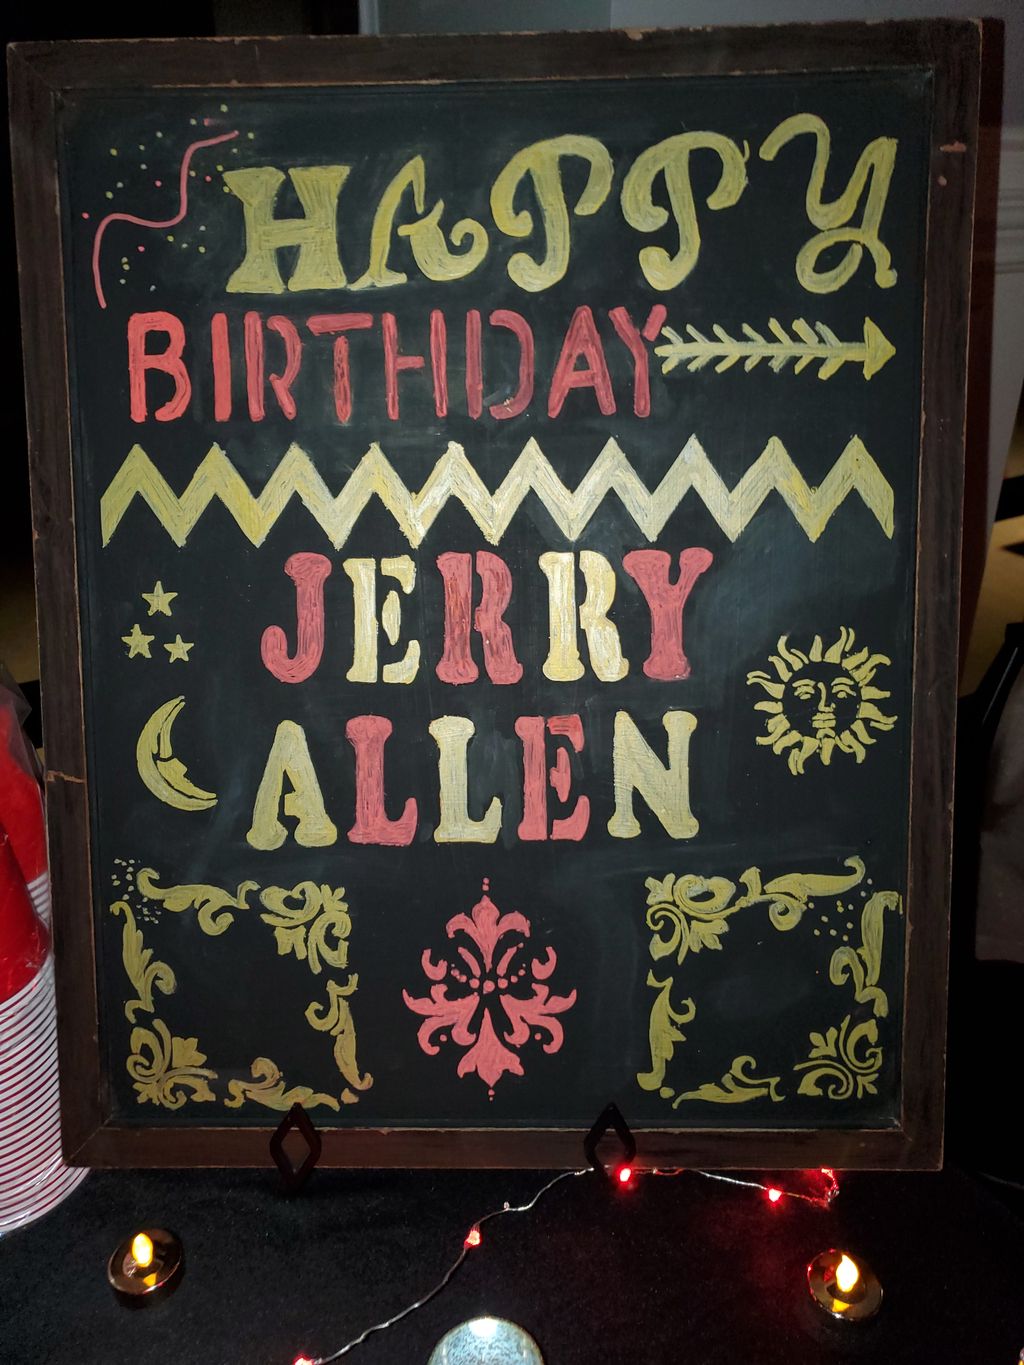 HAPPY
BIRTHDAY
JERRY
ALLEN